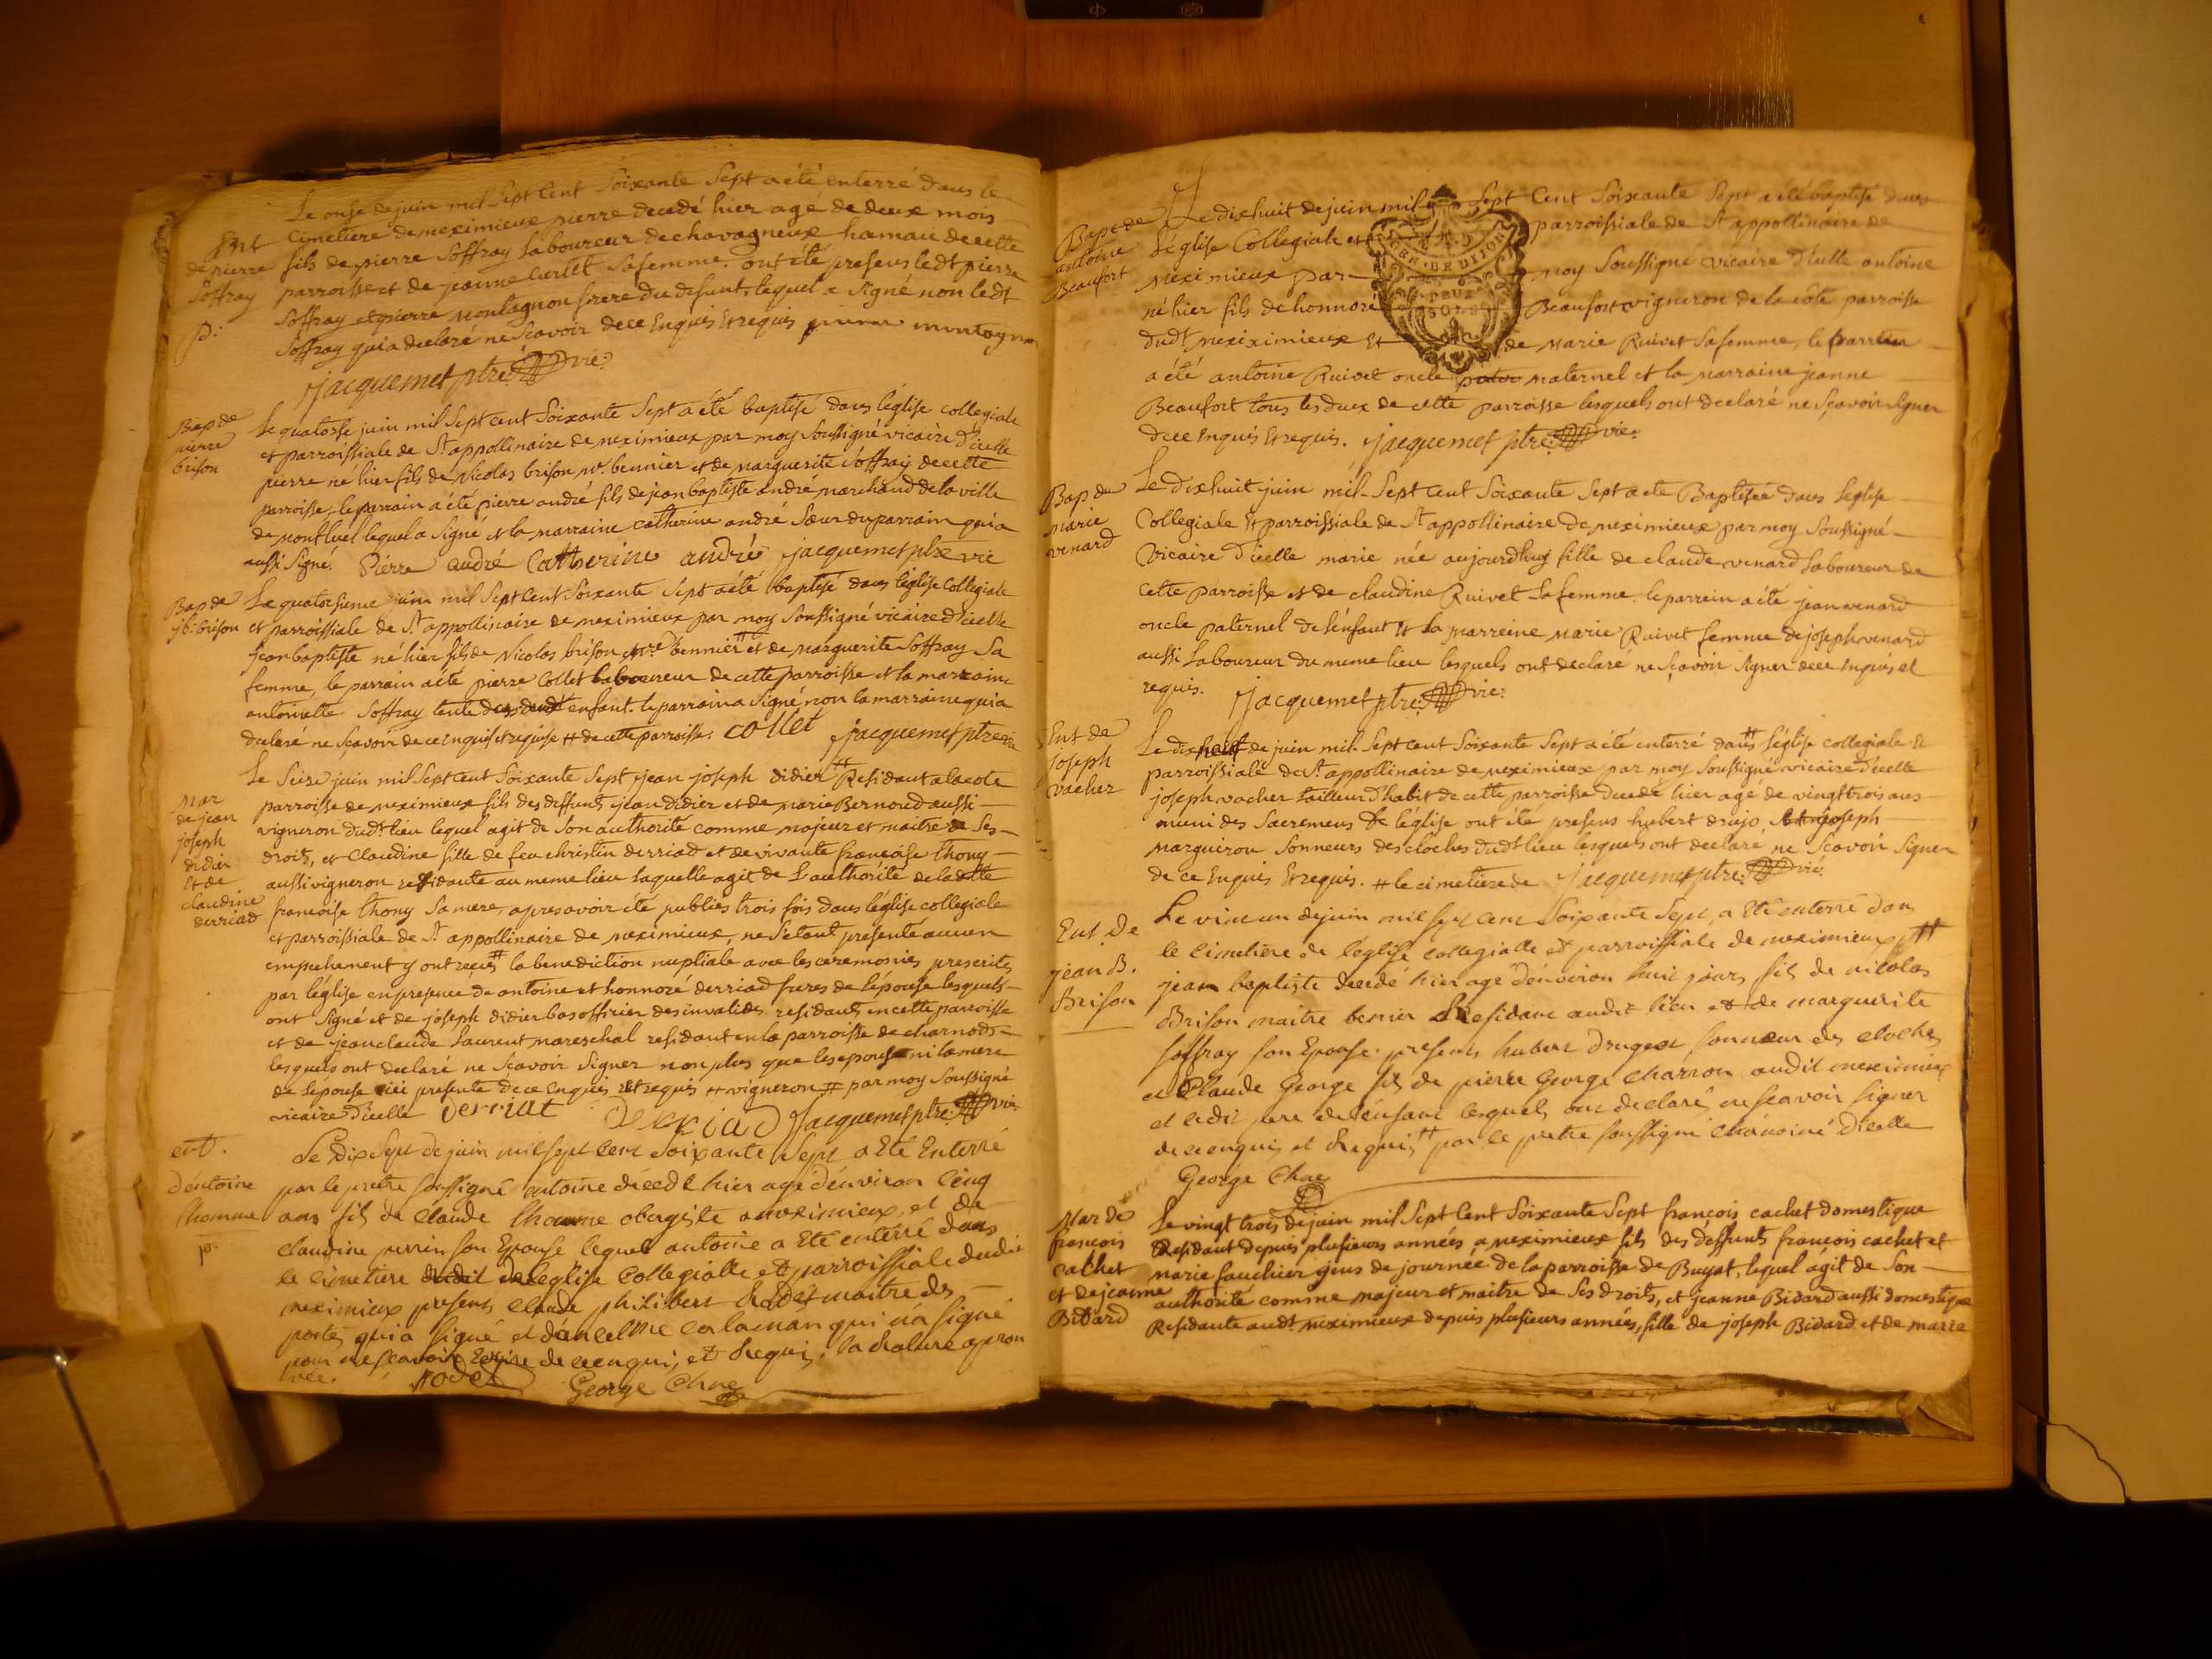 Le onse de juin mil Sept Cent Soixante Sept a été enterré dans le
Ent
de pierre
Soffray
p:
Cimetiere de meximieux pierre decedé hier agé de deux mois
fils de pierre Soffray Laboureur de chavagneux hameau de cette
parroisse et de jeanne Curtet Sa femme. ont été presens ledt pierre
Soffray et pierre montagnon frere du defunt, lequel a signé non ledt
Soffray qui a declaré ne Scavoir de ce Enquis Et requis pierre montagnon
jacquemet ptre vic:
Bap de
pierre
brison
Le quatorse juin mil Sept cent Soixante Sept a été baptisé dans l'église collegiale
et parroissiale de St appollinaire de meximieux par moy Soussigné vicaire d'icelle
pierre né hier fils de Nicolas brison me. bennier et de marguerite Soffray de cette
parroisse, le parrain a été pierre andré fils de jean baptiste andré marchand de la ville
de montluel lequel a Signé et la marraine catherine andré Sœur du parrain qui a
aussi Signé. Pierre andré Catherine andré jacquemet ptre vic
Bap de
jb: brison
Le quatorsieme juin mil Sept Cent Soixante Sept a été baptisé dans l'église Collegiale
et parroissiale de St appollinaire de meximieux par moy Soussigné vicaire d'icelle
Jean baptiste né hier fils de Nicolas brison me bennier # et de marguerite Soffray Sa
femme, le parrain a été pierre Collet laboureur de cette parroisse et la marraine
antoinette Soffray tente dudt enfant. le parrain a Signé non la marraine qui a
declaré ne Scavoir de ce enquise et requise # de cette parroisse. collet jacquemet ptre vic
Mar
de jean
joseph
didier
Et de
claudine
derriad
Le Seise juin mil Sept Cent Soixante Sept jean joseph didier # Residant a la cote
parroisse de meximieux fils des deffunts jean didier et de marie Bernoud aussi
vigneron dudt lieu lequel agit de Son authorité comme majeur et maitre de Ses
droits, et Claudine fille de feu christin derriad et de vivante francoise thony
aussi vigneron residante au meme lieu laquelle agit de L'authorité de la dette
francoise thony Sa mere, apres avoir été publiés trois fois dans l'église collegiale
et parroissiale de St appollinaire de meximieux, ne S'etant presenté aucun
empechement y ont recus # la benediction nuptiale avec les ceremonies prescrites
par l'église en presence de antoine et honnoré derriad freres de l'épouse lesquels
ont Signé et de joseph didier bas officier des invalides residants en cette parroisse
et de jean claude Laurent mareschal residant en la parroisse de charnods
lesquels ont declaré ne Scavoir Signer non plus que les epoux ni la mere
de l'épouse ici presente de ce enquis et requis # vigneron # par moy Soussigné
vicaire d'icelle derriat Derriad Jacquemet ptre: vic
ent.
d'antoine
lhomme
p.
Le Dix Sept de juin mil sept cent soixante Sept a Eté Enterré
par le pretre soussigné antoine décedé hier agé d'environ Cinq
ans fils de Claude lhomme obergiste a meximieux, et de
Claudine perrin son Epouse lequel antoine a Eté enterré dans
le cimetiere de l'eglise Collegialle et parroissiale dudit
meximieux presents Claude philibert Rodet maitre des
postes qui a signé et d'ancelme calaman qui n'a signé
pour ne scavoir Ecrire de ce enquis, et Requis. la Rature aprou
vée. Rodet George Chne
Bapt de
antoine
Beaufort
Le dixhuit de juin mil Sept Cent Soixante Sept a été baptisé dans
l'église Collegiale et parroissiale de St appollinaire de
meximieux par moy Soussigné vicaire d'icelle antoine
né hier fils de honnoré Beaufort vigneron de la côte parroisse
dudt meximieux Et de Marie Ruivet Sa femme, le parrein
a été antoine Ruivet oncle maternel et la marraine jeanne
Beaufort tous les deux de cette parroisse lesquels ont declaré ne Scavoir Signer
de ce Enquis Et requis. jacquemet ptre: vic:
GEN. DE DIJON
DEUX
SOLS
Bap de
marie
venard
Le dixhuit juin mil Sept Cent Soixante Sept a été Baptisée dans l'eglise
Collegiale Et parroissiale de St appollinaire de meximieux par moy Soussigné
vicaire d'icelle marie née aujourdhuy fille de claude venard Laboureur de
cette parroisse et de claudine Ruivet Sa femme. le parrein a été jean venard
oncle paternel de l'énfant Et la marreine Marie Ruivet femme de joseph venard
aussi Laboureur du meme lieu lesquels ont declaré ne Scavoir Signer de ce enquis et
requis. jacquemet ptre: vic:
Ent de
Joseph
vacher
Le dixneuf de juin mil Sept Cent Soixante Sept a été enterré dans # l'église collegiale Et
parroissiale de St appollinaire de meximieux par moy Soussigné vicaire d'icelle
joseph vacher tailleur d'habit de cette parroisse decedé hier agé de vingt trois ans
muni des Sacremens de l'église ont été presens hubert drujo, joseph
Marguiron Sonneurs des cloches dudt lieu lesquels ont declaré ne Scavoir Signer
de ce Enquis Et requis. # le cimetiere de jacquemet ptre: vic:
Ent. de
jean B.
Brison
Le vint un de juin mil sept cent Soixante Sept, a Eté enterré dans
le Cimetiere de l'église collegialle et parroissiale de meximieux #
jean baptiste decedé hier agé d'environ huit jours fils de nicolas
Brison maitre benier Residant audit lieu et de marguerite
soffray son Epouse. presents hubert drugeot sonneur des cloches
et Claude George fils de pierre George charron audit meximieux
et ledit pere de l'énfant lesquels ont declaré ne scavoir signer
de ce enquis et Requis # par le pretre soussigné chanoine d'icelle
George Chne
Mar de
françois
cachet
et de jeanne
Bidard
Le vingt trois de juin mil Sept Cent Soixante Sept françois cachet domestique
Residant depuis plusieurs années a meximieux fils des deffunts françois cachet et
marie fauchier gens de journée de la parroisse de Buyat, lequel agit de Son
authorité comme majeur et maitre de Ses droits, et jeanne Bidard aussi domestique
Residante audt meximieux depuis plusieurs années, fille de joseph Bidard et de marie